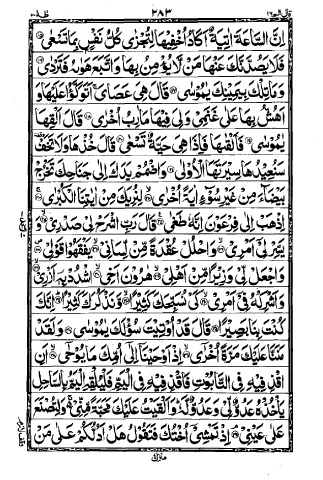 قال الم ١٦ ٢٨٣ طٰهٰ ٢٠
اِنَّ السَّاعَةَ اٰتِيَةٌ اَكَادُ اُخْفِيْهَا لِتُجْزٰى كُلُّ نَفْسٍۭ بِمَا تَسْعٰى
فَلَا يَصُدَّنَّكَ عَنْهَا مَنْ لَّا يُؤْمِنُ بِهَا وَاتَّبَعَ هَوٰىهُ فَتَرْدٰى
وَمَا تِلْكَ بِيَمِيْنِكَ يٰمُوْسٰى قَالَ هِيَ عَصَايَ اَتَوَكَّؤُا عَلَيْهَا وَ
اَهُشُّ بِهَا عَلٰى غَنَمِيْ وَلِيَ فِيْهَا مَاٰرِبُ اُخْرٰى قَالَ اَلْقِهَا
يٰمُوْسٰى فَاَلْقٰىهَا فَاِذَا هِيَ حَيَّةٌ تَسْعٰى قَالَ خُذْهَا وَلَا تَخَفْ
سَنُعِيْدُهَا سِيْرَتَهَا الْاُوْلٰى وَاضْمُمْ يَدَكَ اِلٰى جَنَاحِكَ تَخْرُجْ
بَيْضَآءَ مِنْ غَيْرِ سُوْٓءٍ اٰيَةً اُخْرٰى لِنُرِيَكَ مِنْ اٰيٰتِنَا الْكُبْرٰى
اِذْهَبْ اِلٰى فِرْعَوْنَ اِنَّهٗ طَغٰى قَالَ رَبِّ اشْرَحْ لِيْ صَدْرِيْ وَ
يَسِّرْ لِيْٓ اَمْرِيْ وَاحْلُلْ عُقْدَةً مِّنْ لِّسَانِيْ يَفْقَهُوْا قَوْلِيْ
وَاجْعَلْ لِّيْ وَزِيْرًا مِّنْ اَهْلِيْ هٰرُوْنَ اَخِي اشْدُدْ بِهٖٓ اَزْرِيْ
وَاَشْرِكْهُ فِيْٓ اَمْرِيْ كَيْ نُسَبِّحَكَ كَثِيْرًا وَّنَذْكُرَكَ كَثِيْرًا اِنَّكَ
كُنْتَ بِنَا بَصِيْرًا قَالَ قَدْ اُوْتِيْتَ سُؤْلَكَ يٰمُوْسٰى وَلَقَدْ
مَنَنَّا عَلَيْكَ مَرَّةً اُخْرٰى اِذْ اَوْحَيْنَآ اِلٰٓى اُمِّكَ مَا يُوْحٰٓى اَنِ
اقْذِفِيْهِ فِي التَّابُوْتِ فَاقْذِفِيْهِ فِي الْيَمِّ فَلْيُلْقِهِ الْيَمُّ بِالسَّاحِلِ
يَاْخُذْهُ عَدُوٌّ لِّيْ وَعَدُوٌّ لَّهٗ وَاَلْقَيْتُ عَلَيْكَ مَحَبَّةً مِّنِّيْ وَلِتُصْنَعَ
عَلٰى عَيْنِيْ اِذْ تَمْشِيْٓ اُخْتُكَ فَتَقُوْلُ هَلْ اَدُلُّكُمْ عَلٰى مَنْ
منزل